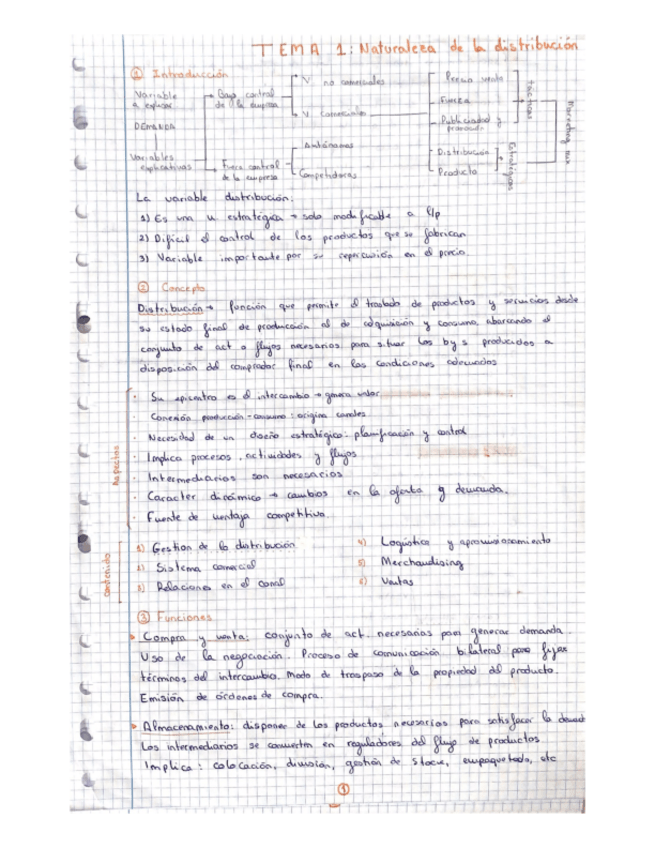 TEMA 1: Naturaleza de la distribución
① Introducción
Variable a explicar
DEMANDA
Variables explicativas
Bajo control de la empresa
Fuera control de la empresa
V. no comerciales
V. comerciales
Autónomas
Competidoras
Precio venta
Fuerza
Publicidad y promoción
Distribución
Producto
tácticas
Estratégicas
Marketing mix
La variable distribución:
1) Es una v. estratégica → solo modificable a l/p
2) Difícil el control de los productos que se fabrican
3) Variable importante por su repercusión en el precio.
② Concepto
Distribución → función que permite el traslado de productos y servicios desde
su estado final de producción al de adquisición y consumo, abarcando el
conjunto de act o flujos necesarios para situar los b y s producidos a
disposición del comprador final en las condiciones adecuadas
Aspectos
· Su epicentro es el intercambio → genera valor
· Conexión producción-consumo: origina canales
· Necesidad de un diseño estratégico: planificación y control
· Implica procesos, actividades y flujos
· Intermediarios son necesarios
· Caracter dinámico → cambios en la oferta y demanda.
· Fuente de ventaja competitiva.
Contenido
1) Gestion de la distribución
2) Sistema comercial
3) Relaciones en el canal
4) Logística y aprovisionamiento
5) Merchandising
6) Ventas
③ Funciones
▸ Compra y venta: conjunto de act. necesarias para generar demanda.
Uso de la negociación. Proceso de comunicación bilateral para fijar
términos del intercambio. Modo de traspaso de la propiedad del producto.
Emisión de órdenes de compra.
▸ Almacenamiento: disponer de los productos necesarios para satisfacer la demand
Los intermediarios se convierten en reguladores del flujo de productos
Implica: colocación, división, gestión de stocks, empaquetado, etc
①